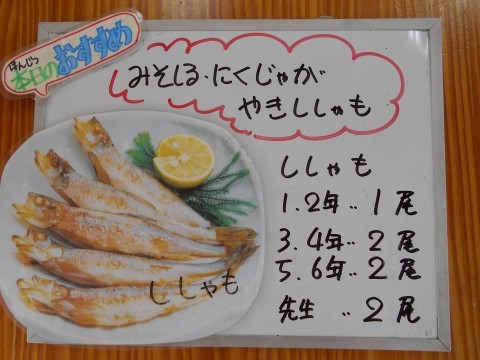 ほんじつ
本日のおすすめ
みそしる・にくじゃが
やきししゃも
ししゃも
1.2年‥1尾
3.4年‥2尾
5.6年‥2尾
先生‥2尾
ししゃも